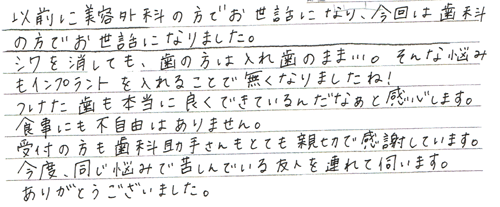 以前に美容外科の方でお世話になり、今回は歯科
の方でお世話になりました。
シワを消しても、歯の方は入れ歯のまま…。そんな悩み
もインプラントを入れることで無くなりましたね!
つけた歯も本当に良くできているんだなぁと感心します。
食事にも不自由はありません。
受付の方も歯科助手さんもとても親切で感謝しています。
今度、同じ悩みで苦しんでいる友人を連れて伺います。
ありがとうございました。